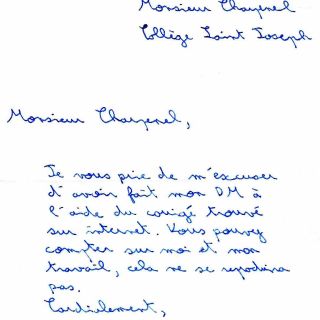 Monsieur Chayenel
Collège Saint Joseph
Monsieur Chayenel,
Je vous prie de m'excuser
d'avoir fait mon DM à
l'aide du corrigé trouvé
sur internet. Vous pouvez
compter sur moi et mon
travail, cela ne se reproduira
pas.
Cordialement,